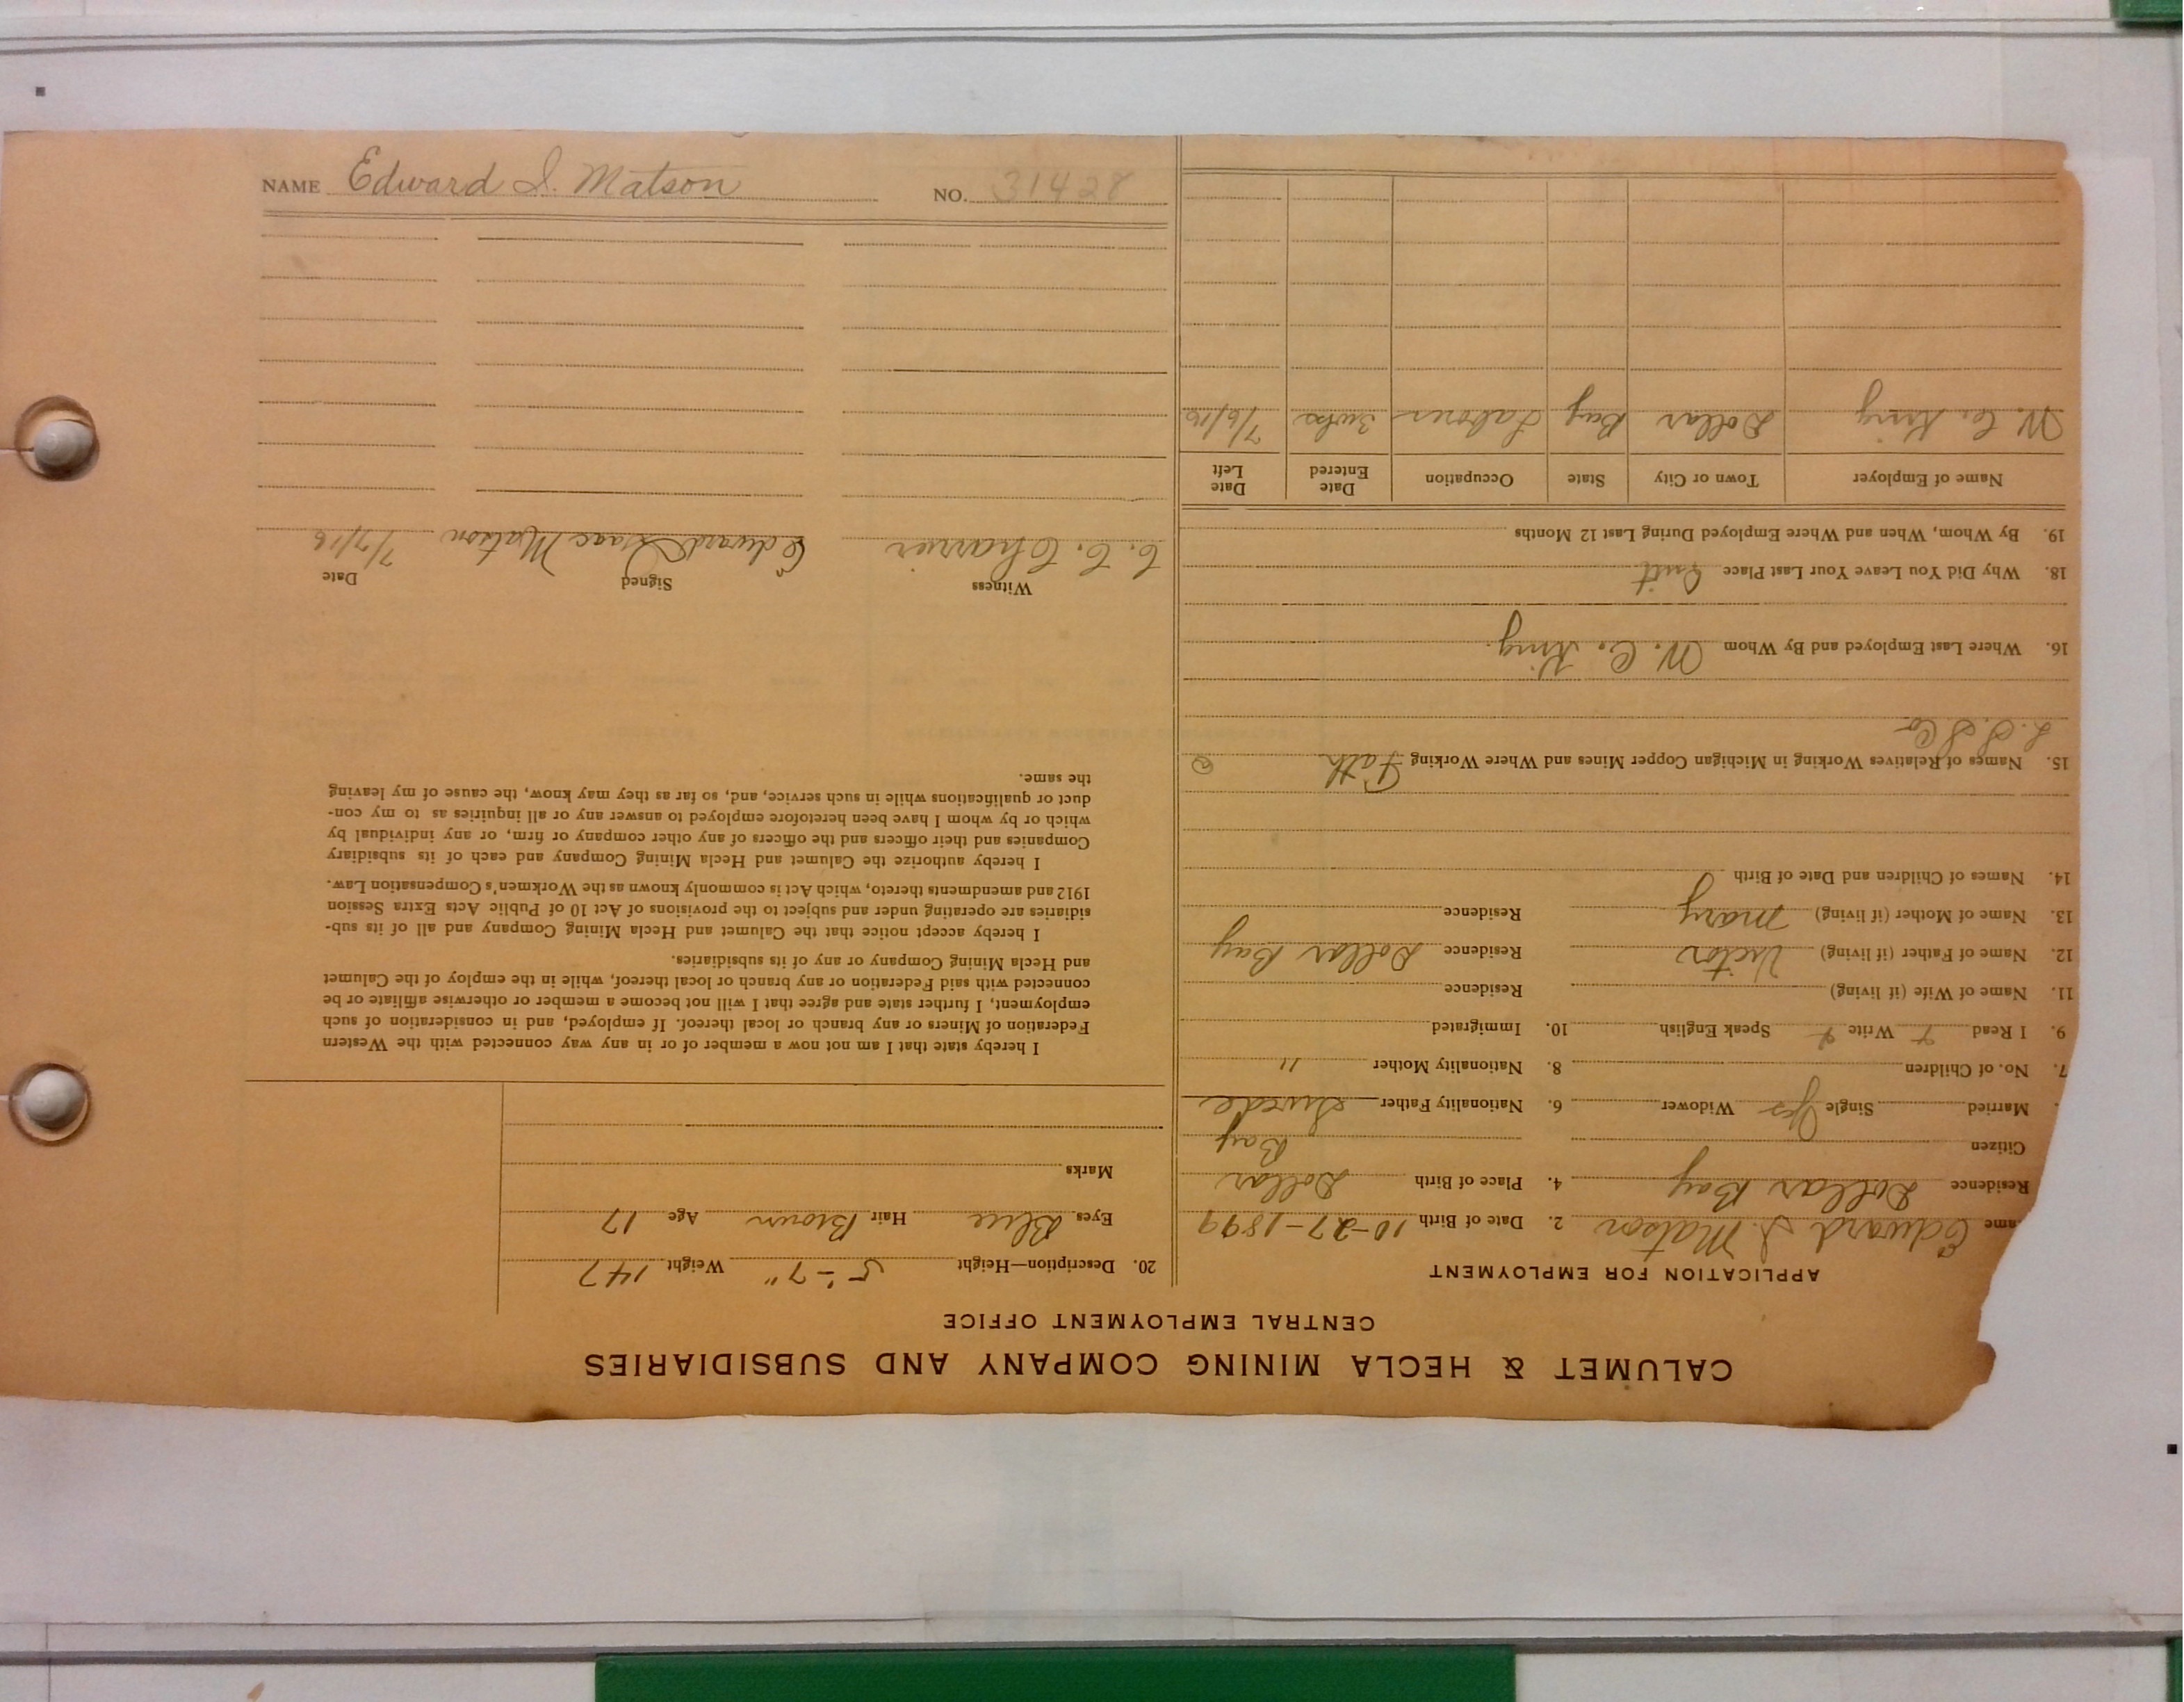 CALUMET & HECLA MINING COMPANY AND SUBSIDIARIES
CENTRAL EMPLOYMENT OFFICE
APPLICATION FOR EMPLOYMENT
ame Edward I. Matson 2. Date of Birth 10-27-1899
Residence Dollar Bay 4. Place of Birth Dollar
Citizen Bay
Married Single Yes Widower 6. Nationality Father Swede
7. No. of Children 8. Nationality Mother "
9. I Read Write Speak English 10. Immigrated
11. Name of Wife (if living) Residence
12. Name of Father (if living) Victor Residence Dollar Bay
13. Name of Mother (if living) Mary Residence
14. Names of Children and Date of Birth
15. Names of Relatives Working in Michigan Copper Mines and Where Working Fath @
L. S. S Co
16. Where Last Employed and By Whom W. C. King.
18. Why Did You Leave Your Last Place Quit
19. By Whom, When and Where Employed During Last 12 Months
Name of Employer Town or City State Occupation Date Entered Date Left
W. C. King Dollar Bay Laborer 3 wks 7/6/16
20. Description—Height 5'-7" Weight 147
Eyes Blue Hair Brown Age 17
Marks
I hereby state that I am not now a member of or in any way connected with the Western
Federation of Miners or any branch or local thereof. If employed, and in consideration of such
employment, I further state and agree that I will not become a member or otherwise affiliate or be
connected with said Federation or any branch or local thereof, while in the employ of the Calumet
and Hecla Mining Company or any of its subsidiaries.
I hereby accept notice that the Calumet and Hecla Mining Company and all of its sub-
sidiaries are operating under and subject to the provisions of Act 10 of Public Acts Extra Session
1912 and amendments thereto, which Act is commonly known as the Workmen's Compensation Law.
I hereby authorize the Calumet and Hecla Mining Company and each of its subsidiary
Companies and their officers and the officers of any other company or firm, or any individual by
which or by whom I have been heretofore employed to answer any or all inquiries as to my con-
duct or qualifications while in such service, and, so far as they may know, the cause of my leaving
the same.
Witness Signed Date
C. C. Charrier Edward Isaac Matson 7/7/16
NAME Edward I. Matson NO. 31428